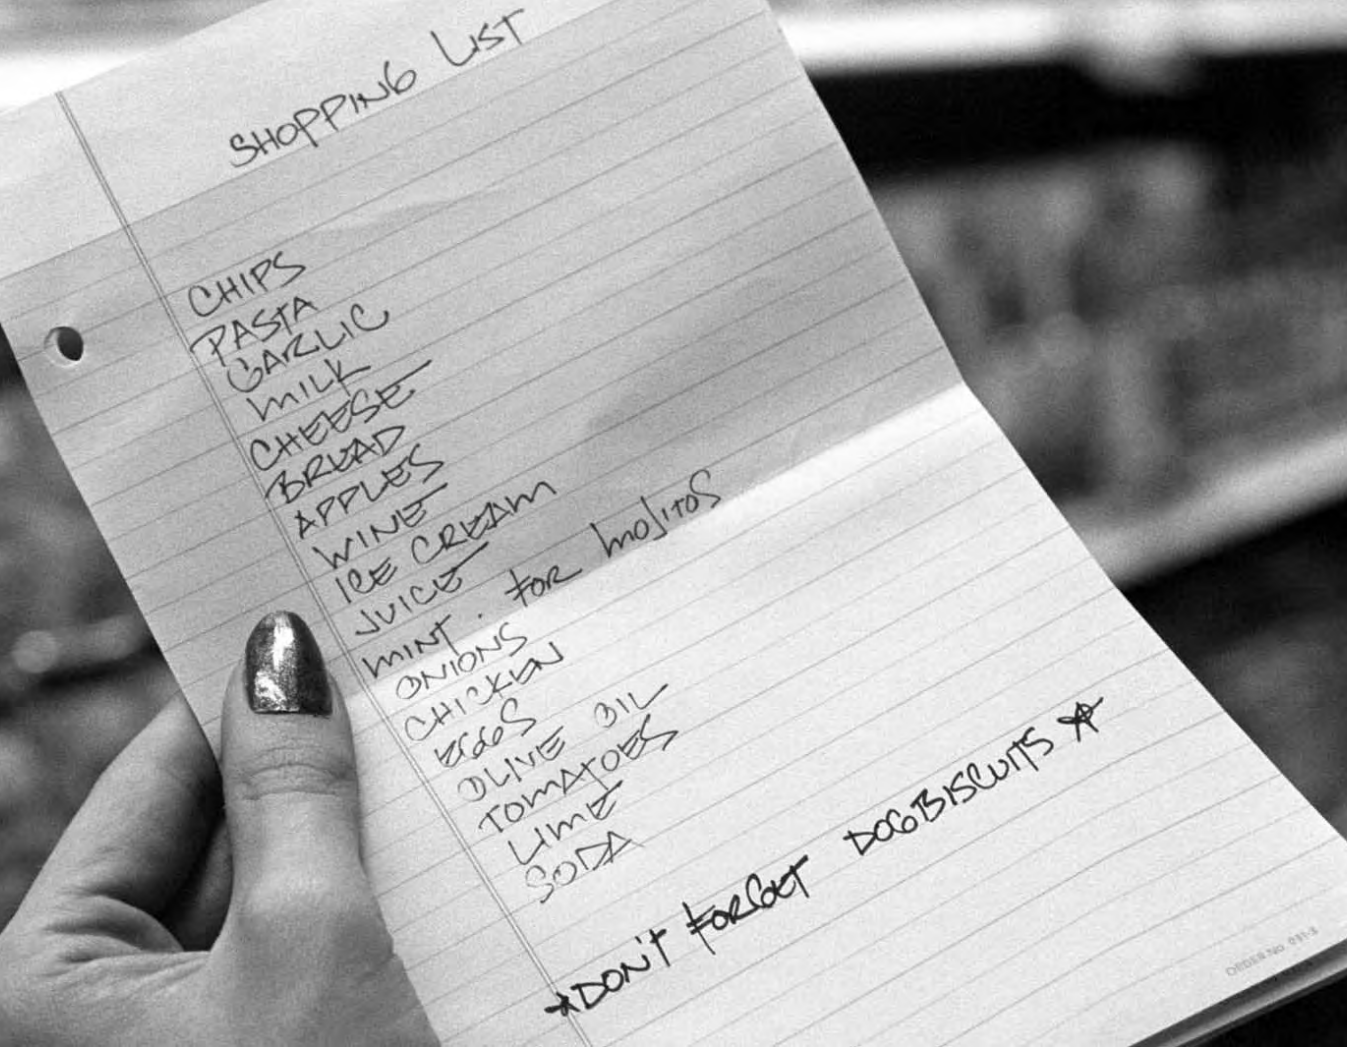 SHOPPING LIST
CHIPS
PASTA
GARLIC
MILK
CHEESE
BREAD
APPLES
WINE
ICE CREAM
JUICE
MINT. FOR MOJITOS
ONIONS
CHICKEN
EGGS
OLIVE OIL
TOMATOES
LIME
SODA
*DON'T FORGET DOG BISCUITS ☆
ORDER No. 031-3